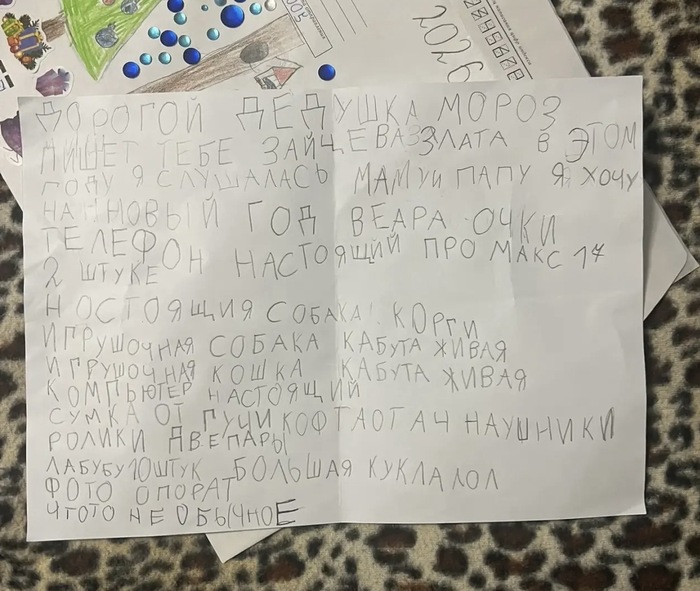 2026
ДОРОГОЙ ДЕДУШКА МОРОЗ
ПИШЕТ ТЕБЕ ЗАЙЦЕВА ЗЛАТА В ЭТОМ
ГОДУ Я СЛУШАЛАСЬ МАМУ И ПАПУ Я ХОЧУ
НА НОВЫЙ ГОД ВЕАРА ОЧКИ
ТЕЛЕФОН НАСТОЯЩИЙ ПРО МАКС 17
2 ШТУКЕ
НОСТОЯЩИЯ СОБАКА! КОРГИ
ИГРУШОЧНАЯ СОБАКА КАБУТА ЖИВАЯ
ИГРУШОЧНАЯ КОШКА КАБУТА ЖИВАЯ
КОМПЬЮТЕР НАСТОЯЩИЙ
СУМКА ОТ ГУЧИ КОФТА ОТ АЧ НАУШНИКИ
РОЛИКИ ДВЕ ПАРЫ
ЛАБУБУ 10 ШТУК БОЛЬШАЯ КУКЛА ЛОЛ
ФОТО ОПОРАТ
ЧТОТО НЕ ОБЫЧНОЕ